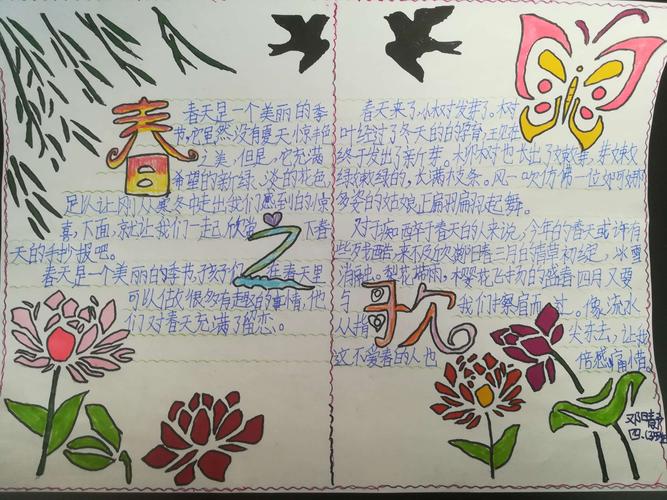 春天是一个美丽的季
节。它虽然没有夏天惊艳色
之美,但是,它充满
希望的新绿、淡的花色
足以让刚从寒冬中走出我们感到的惊
喜,下面,就让我们一起欣赏一下春
天的手抄报吧。
春天是一个美丽的季节,孩子们在春天里
可以做很多有趣的事情,他
们对春天充满了留恋。
春之歌
春天来了,小树发芽了。树
叶经过了冬天的的孕育,
终于发出了新芽。柳树也长出了嫩芽,芽嫩
绿嫩绿的,长满枝条。风一吹仿佛一位婀娜
多姿的姑娘正翩翩起舞。
对于知西年于春天的人来说,今年的春天或许有
些残酷,来不及欣阳春三月的青草初绽,冰雪
消融,梨花,樱花飞扬的盛春四月又要
与我们擦肩而过。像流水
从指尖东去,让我
这不爱春的人也倍感痛惜。
邓晴
四、